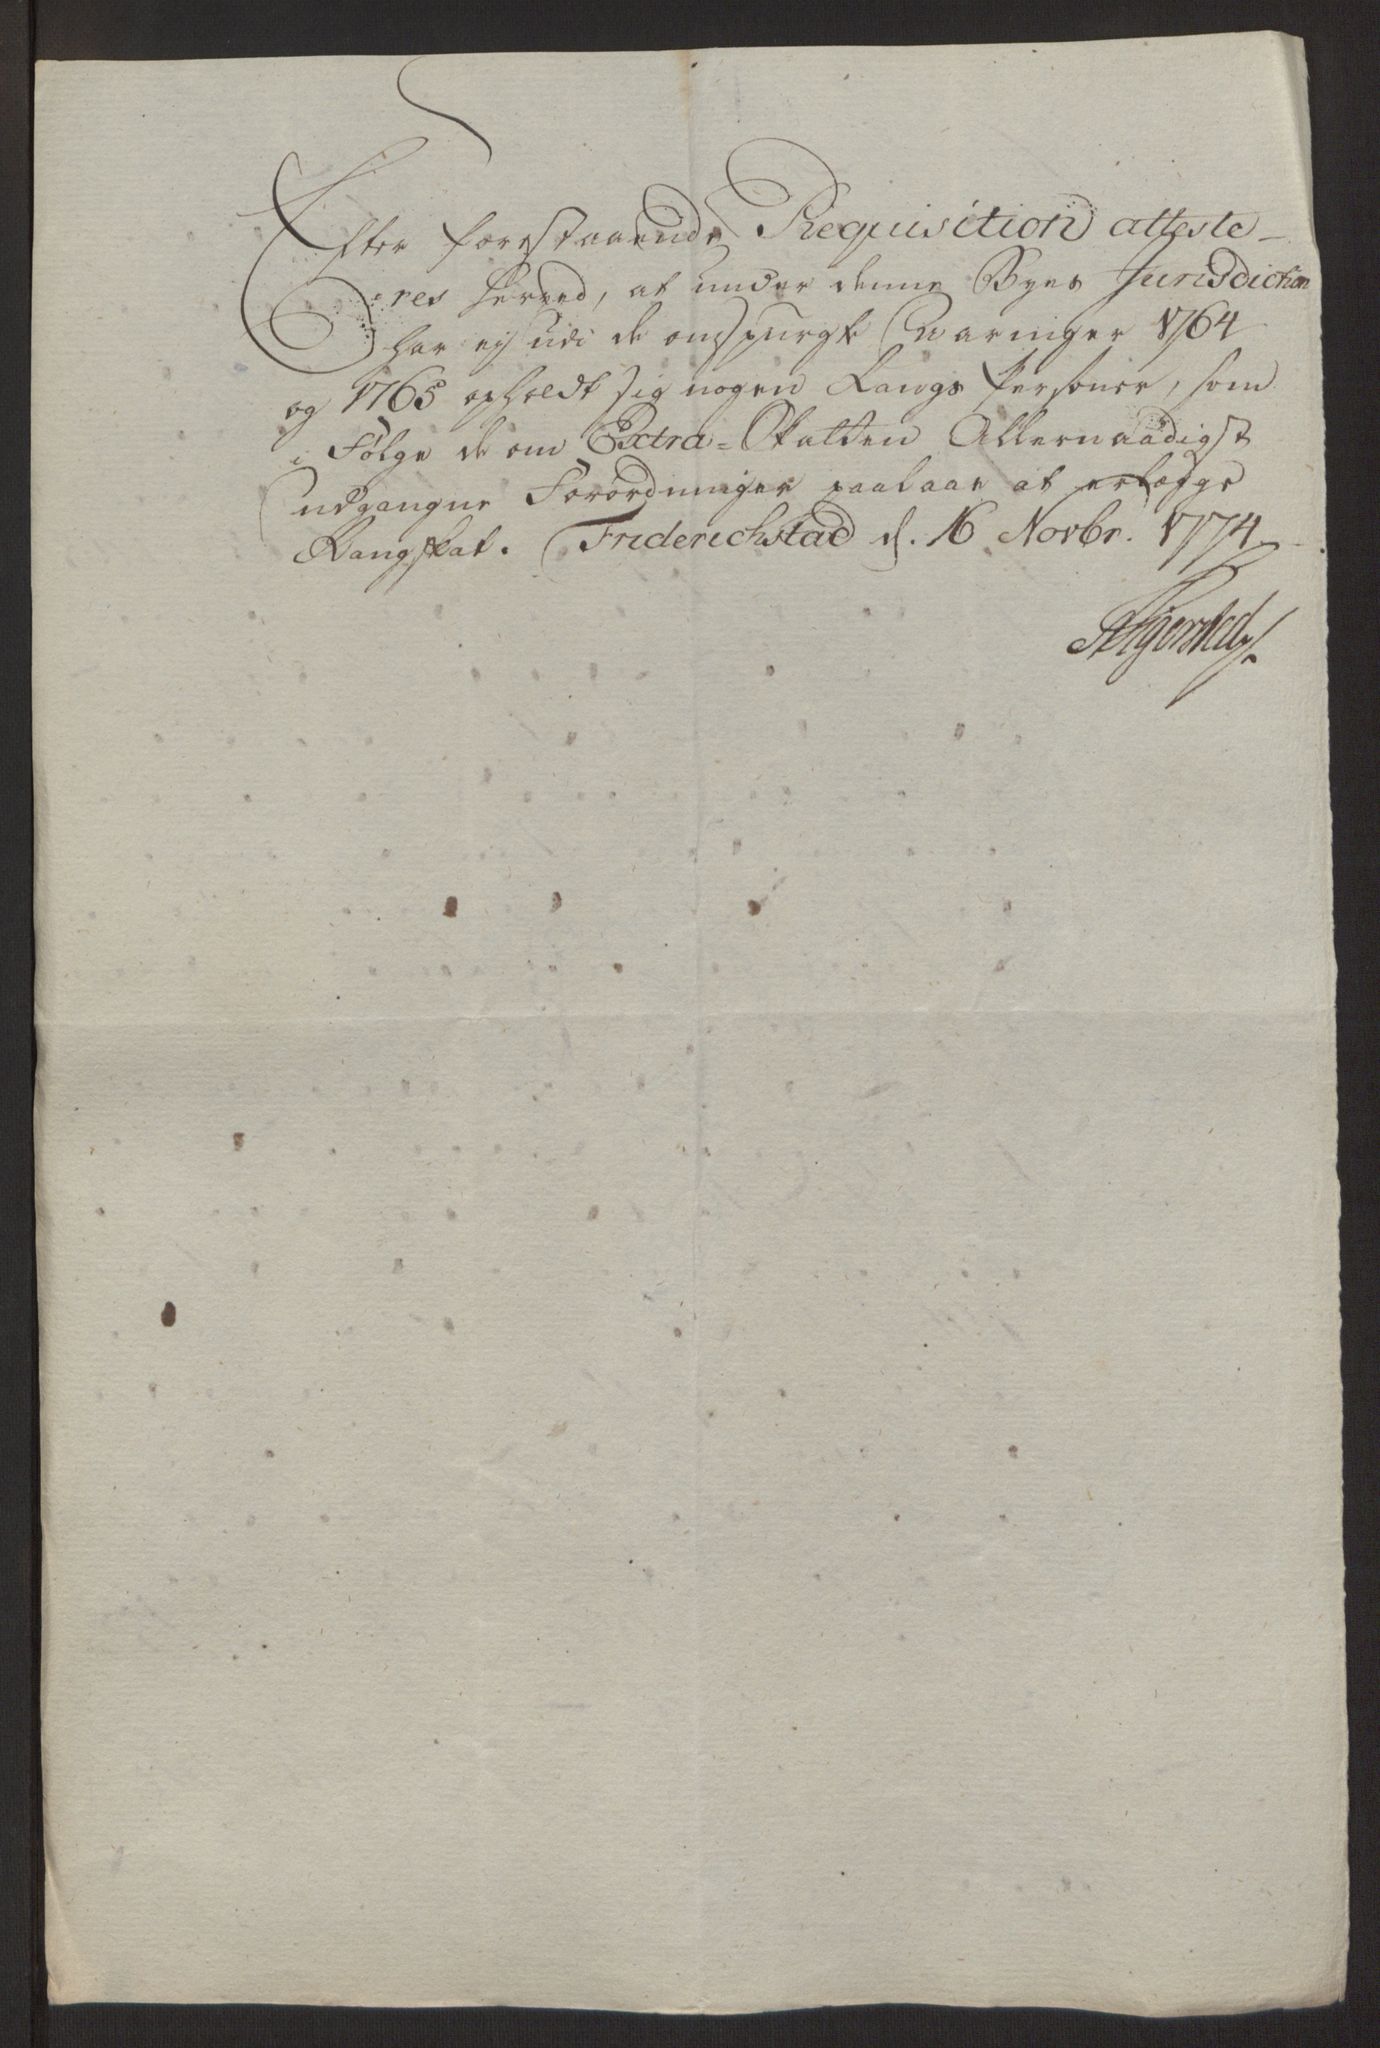 Efter forestaaende Requisition atteste-
res herved, at under denne Byes Jurisdiction
har ej udi de omspurgte Aaringer 1764
og 1765 opholdt sig nogen Rangs Personer, som
i Følge de om Extra-Skatten Allernaadigst
udgangne Forordninger paalaae at erlægge
Rangskat. Friderichstad d. 16 Novbr. 1774.